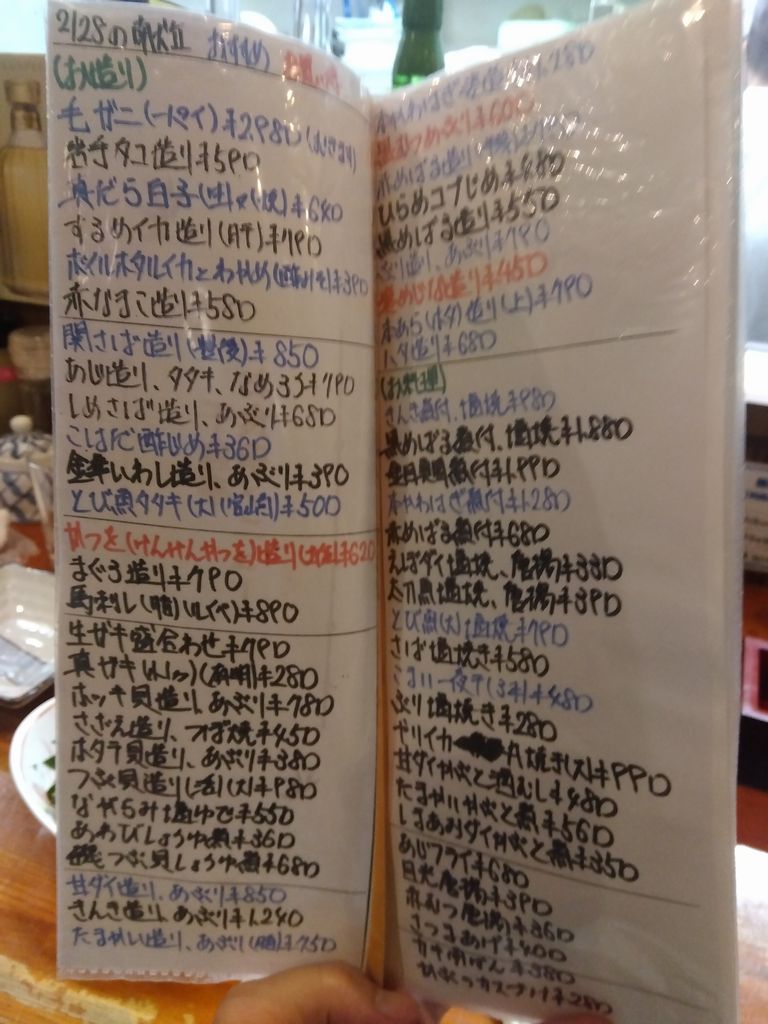 2/28の献立 おすすめ
(お造り)
毛ガニ(一パイ)¥2,980
岩手タコ造り¥590
真だら白子(生)や(焼)¥640
するめイカ造り(肝)¥790
ボイルホタルイカとわかめ ¥390
赤なまこ造り¥580
関さば造り(豊後)¥850
あじ造り、タタキ、なめろう¥790
しめさば造り、あぶり¥680
こはだ酢じめ¥360
金華いわし造り、あぶり¥390
とび魚タタキ(大) ¥500
かつを(けんけんかつを)造り ¥620
まぐろ造り¥790
馬刺し ¥890
生ガキ盛合わせ¥790
真ガキ ¥280
ホッキ貝造り、あぶり¥780
さざえ造り、つぼ焼¥450
ホタテ貝造り、あぶり¥380
つぶ貝造り(活)(大)¥980
ながらみ塩ゆで¥550
あわびしょうゆ煮¥360
磯つぶ貝しょうゆ煮¥680
甘ダイ造り、あぶり¥850
きんき造り、あぶり¥1,240
たまがい造り、あぶり ¥750
本かわはぎ ¥1,280
¥600
赤めばる造り
ひらめコブじめ¥480
黒めばる造り¥550
ぶり造り、あぶり¥790
造り¥450
本あら(ハタ)造り(上)¥990
ハタ造り¥680
(お料理)
きんき煮付、塩焼¥980
黒めばる煮付、塩焼¥1,880
金目鯛煮付¥1,990
本かわはぎ煮付¥1,280
赤めばる煮付¥680
えぼダイ塩焼、唐揚¥330
太刀魚塩焼、唐揚¥390
とび魚(大)塩焼¥790
さば塩焼き¥580
こまい一夜干(3本)¥480
ぶり塩焼き¥280
ヤリイカ 丸焼き(大)¥990
甘ダイかぶと酒むし¥480
たまがいかぶと煮¥560
しまあおダイかぶと煮¥350
あじフライ¥680
目光唐揚¥390
赤むつ唐揚¥360
さつまあげ¥400
カキ南ばん¥380
¥280